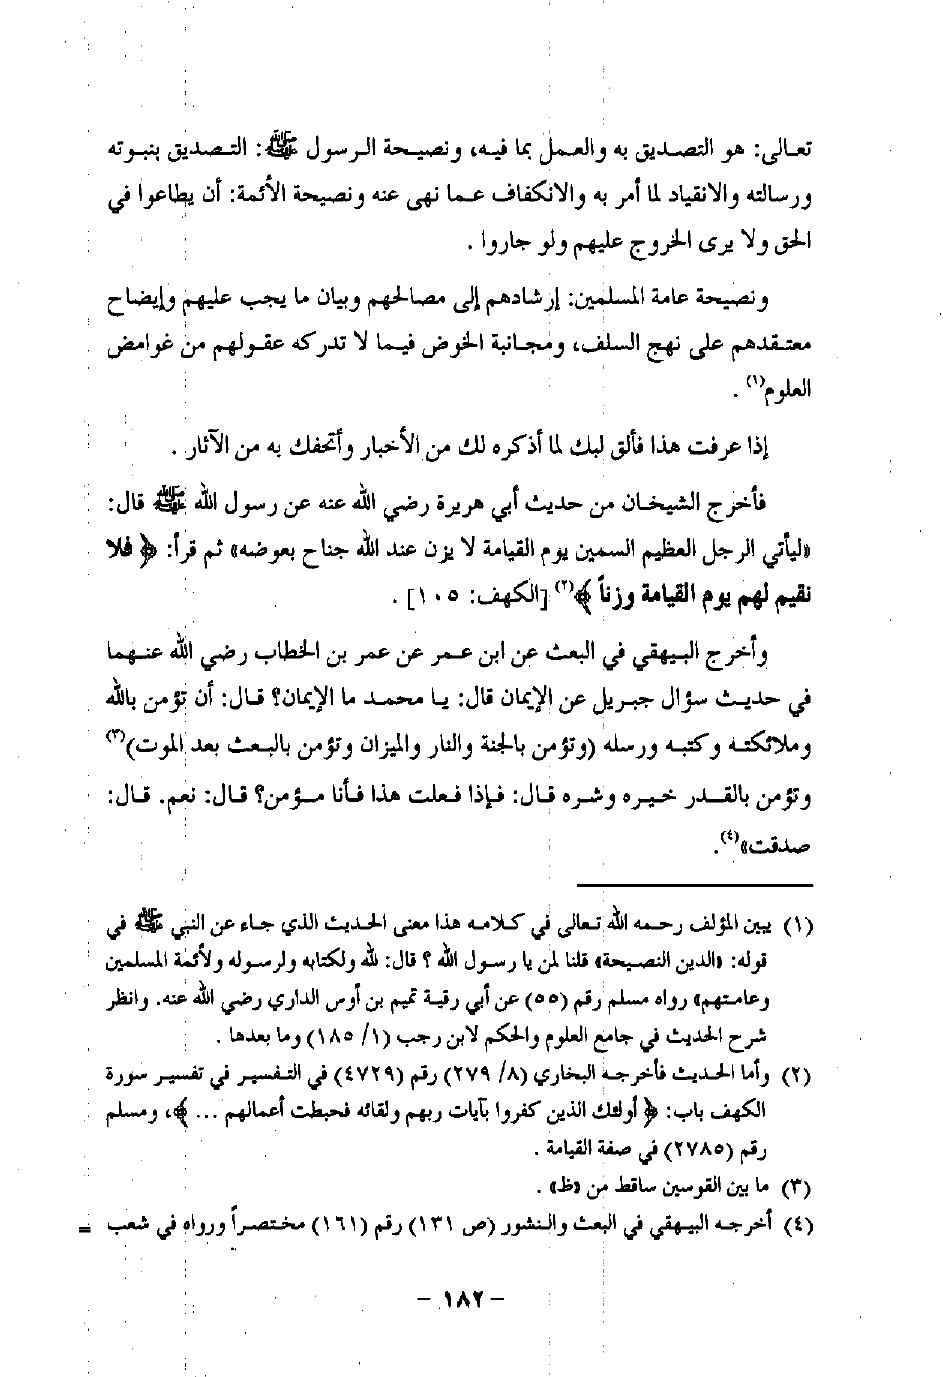 تعالى: هو التصديق به والعمل بما فيه، ونصيحة الرسول ﷺ: التصديق بنبوته
ورسالته والانقياد لما أمر به والانكفاف عما نهى عنه ونصيحة الأئمة: أن يطاعوا في
الحق ولا يرى الخروج عليهم ولو جاروا .
ونصيحة عامة المسلمين: إرشادهم إلى مصالحهم وبيان ما يجب عليهم وإيضاح
معتقدهم على نهج السلف، ومجانبة الخوض فيما لا تدركه عقولهم من غوامض
العلوم(١) .
إذا عرفت هذا فألق لبك لما أذكره لك من الأخبار وأتحفك به من الآثار .
فأخرج الشيخان من حديث أبي هريرة رضي الله عنه عن رسول الله ﷺ قال:
«ليأتي الرجل العظيم السمين يوم القيامة لا يزن عند الله جناح بعوضه» ثم قرأ: ﴿ فلا
نقيم لهم يوم القيامة وزناً ﴾(٢) [الكهف: ١٠٥] .
وأخرج البيهقي في البعث عن ابن عمر عن عمر بن الخطاب رضي الله عنهما
في حديث سؤال جبريل عن الإيمان قال: يا محمد ما الإيمان؟ قال: أن تؤمن بالله
وملائكته وكتبه ورسله (وتؤمن بالجنة والنار والميزان وتؤمن بالبعث بعد الموت)(٣)
وتؤمن بالقدر خيره وشره قال: فإذا فعلت هذا فأنا مؤمن؟ قال: نعم. قال:
صدقت»(٤).
(١) يبين المؤلف رحمه الله تعالى في كلامه هذا معنى الحديث الذي جاء عن النبي ﷺ في
قوله: «الدين النصيحة» قلنا لمن يا رسول الله ؟ قال: لله ولكتابه ولرسوله ولأئمة المسلمين
وعامتهم» رواه مسلم رقم (٥٥) عن أبي رقية تميم بن أوس الداري رضي الله عنه. وانظر
شرح الحديث في جامع العلوم والحكم لابن رجب (١/ ١٨٥) وما بعدها .
(٢) وأما الحديث فأخرجه البخاري (٨/ ٢٧٩) رقم (٤٧٢٩) في التفسير في تفسير سورة
الكهف باب: ﴿ أولئك الذين كفروا بآيات ربهم ولقائه فحبطت أعمالهم ... ﴾، ومسلم
رقم (٢٧٨٥) في صفة القيامة .
(٣) ما بين القوسين ساقط من «ظ» .
(٤) أخرجه البيهقي في البعث والنشور (ص ١٣١) رقم (١٦١) مختصراً ورواه في شعب =
- ١٨٢ -